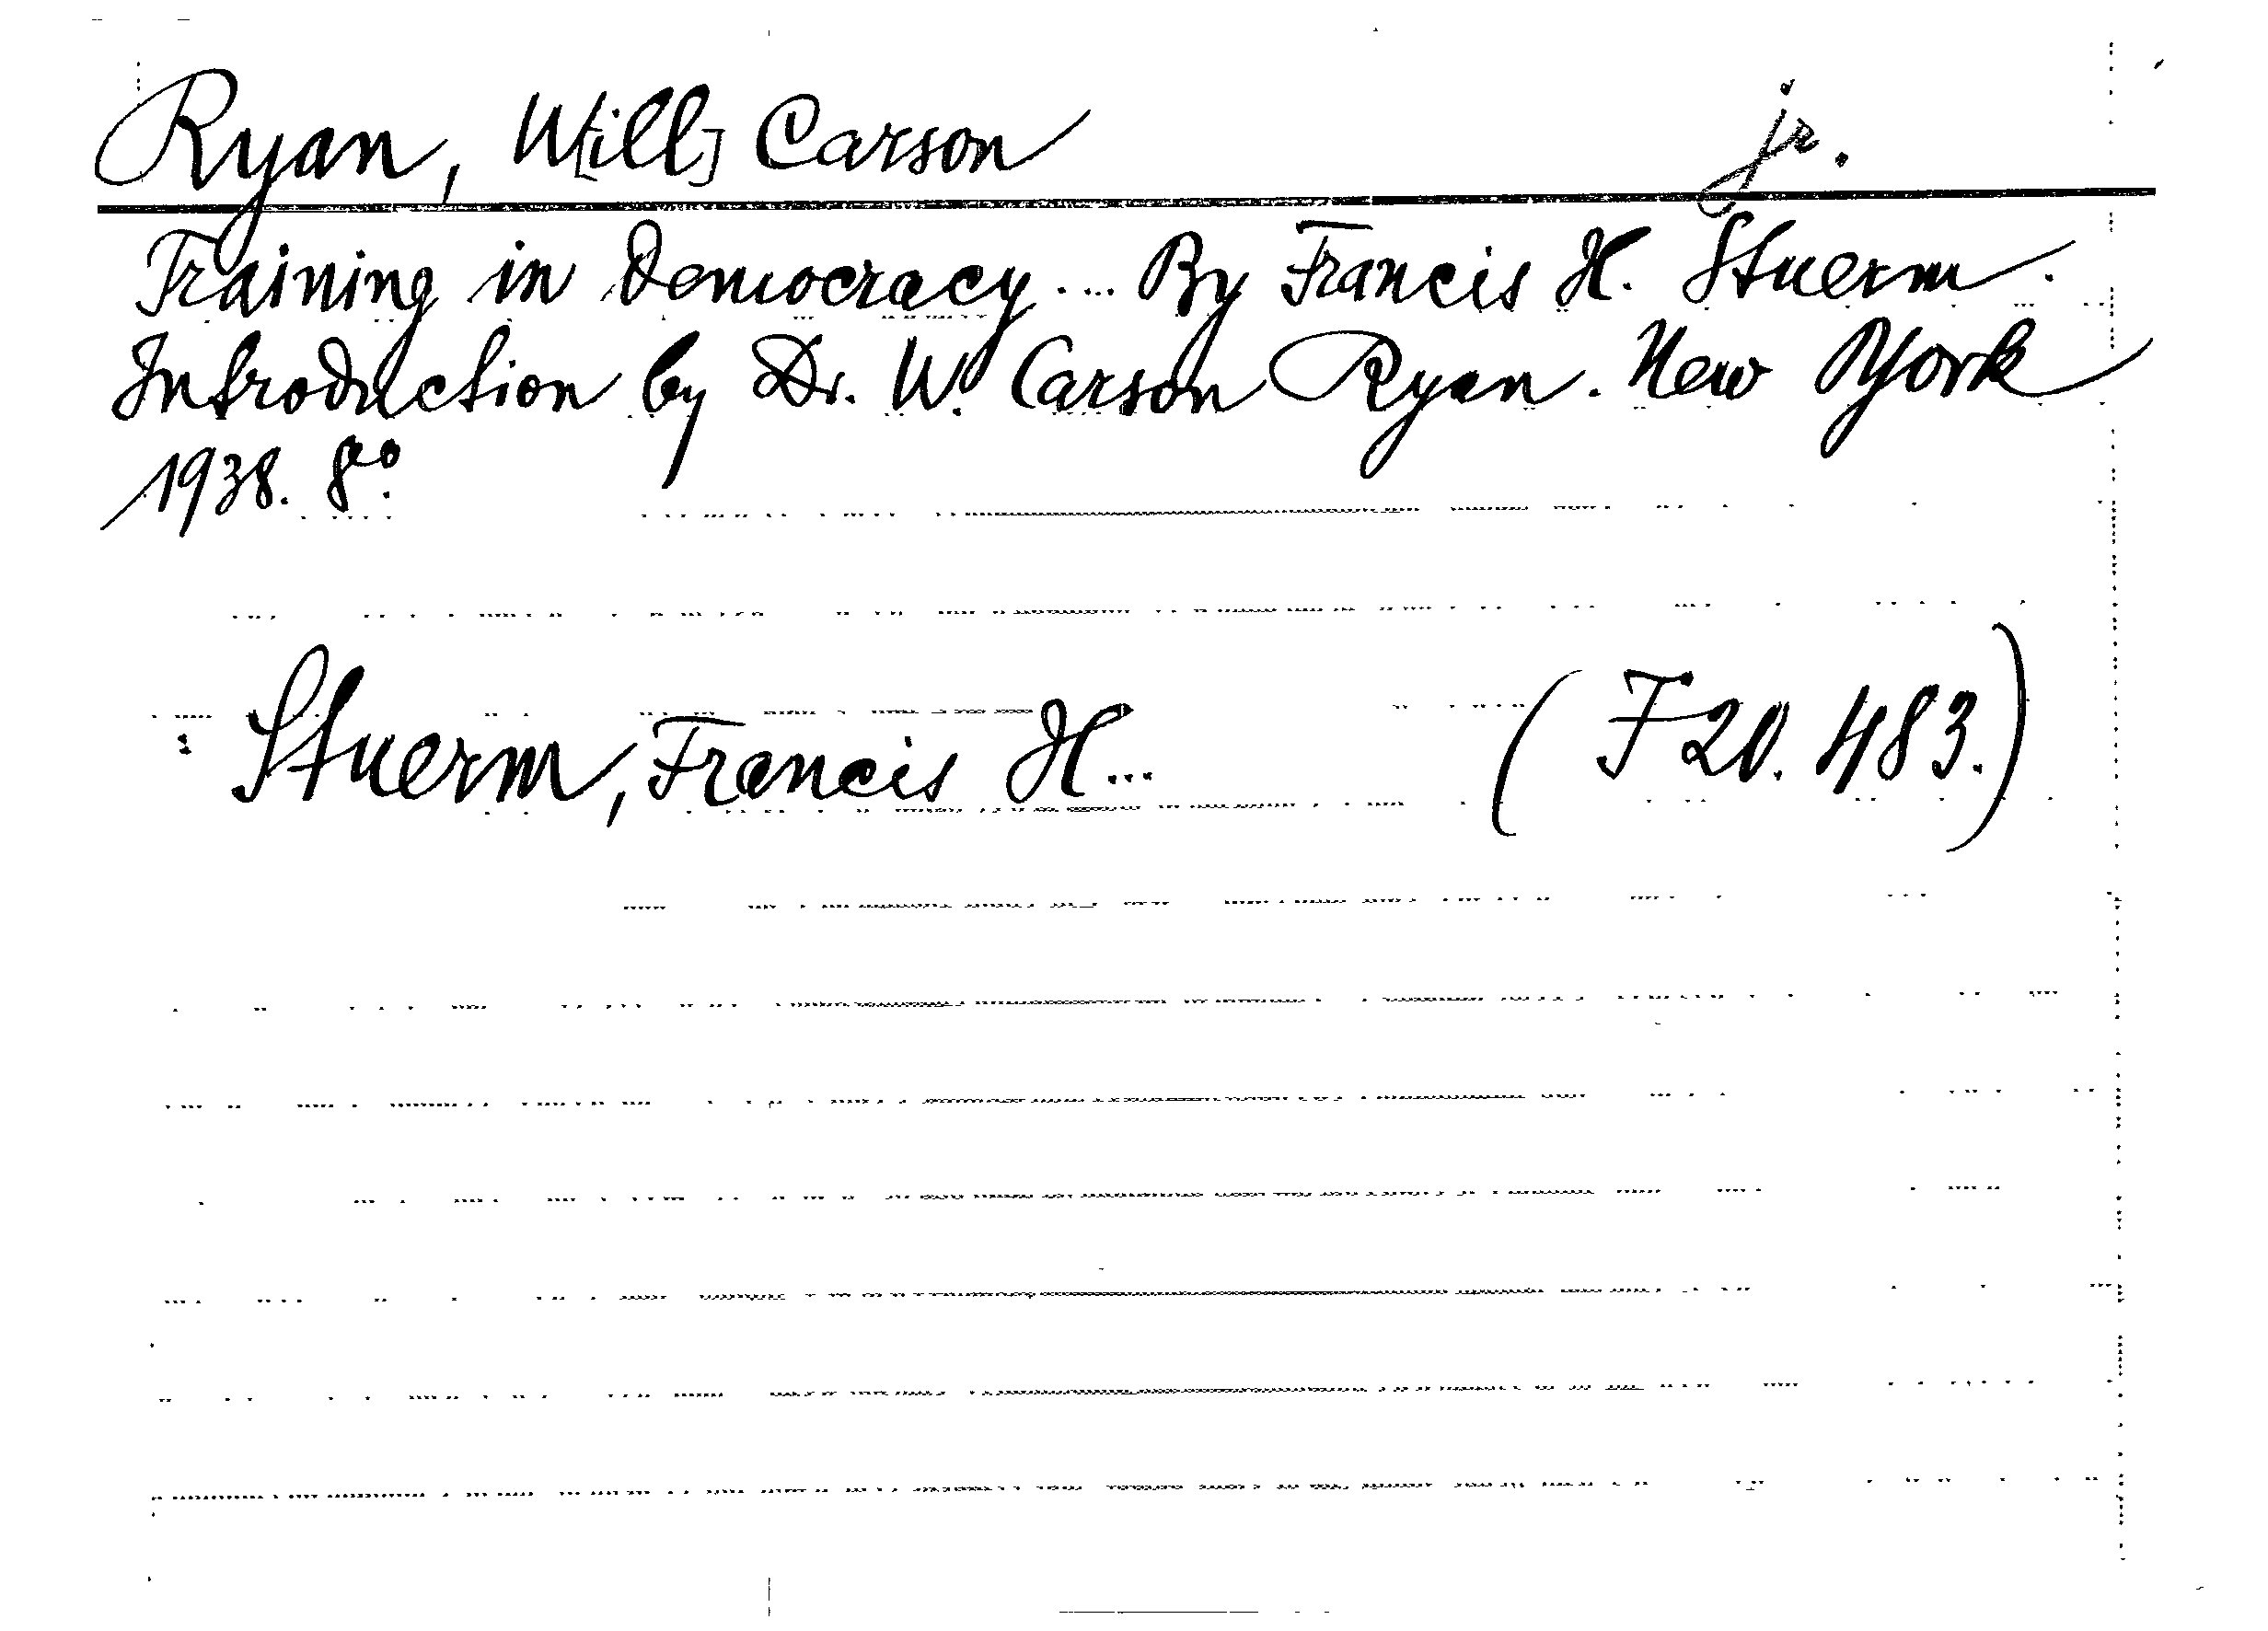 Ryan, W[ill] Carson jr.
Training in Democracy.... By Francis H. Stuerm.
Introduction by Dr. W. Carson Ryan. New York
1938. 8°.
: Stuerm, Francis H... (F 20. 483.)